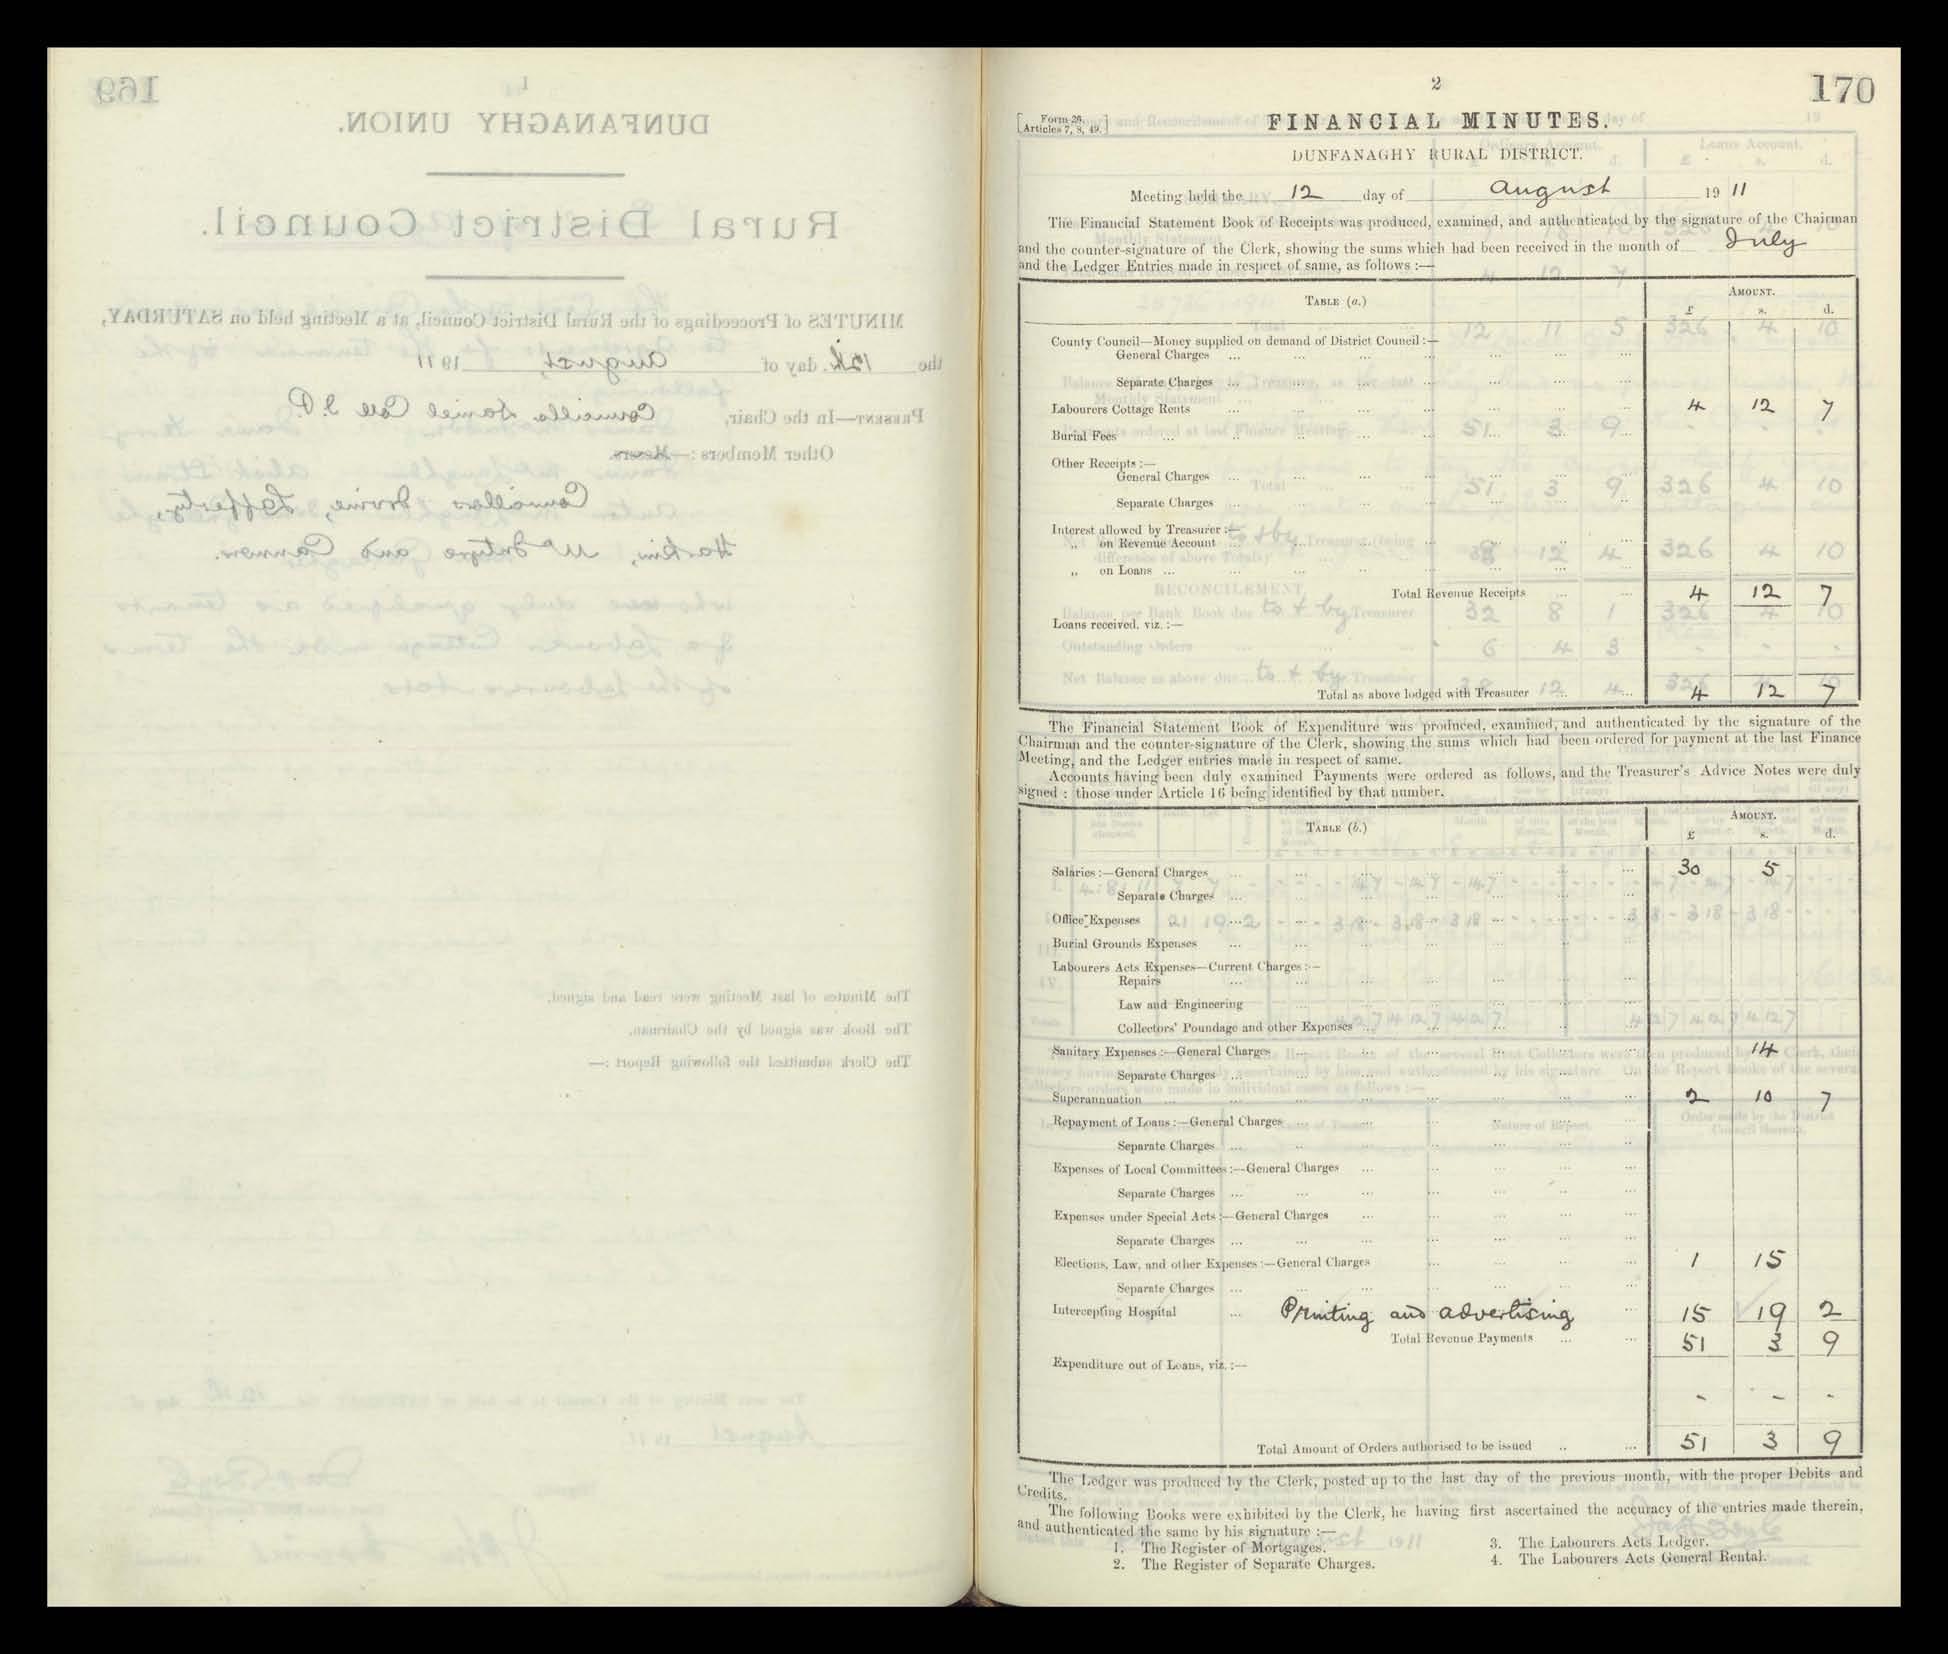 169
1
DUNFANAGHY UNION.
Rural District Council.
MINUTES of Proceedings of the Rural District Council, at a Meeting held on SATURDAY,
the 12th. day of August, 1911
PRESENT—In the Chair, Councillor Daniel Coll J.P.
Other Members :—Messrs.
Councillors Irvine, Lafferty,
Harkin, McIntyre and Cannon.
The Minutes of last Meeting were read and signed.
The Book was signed by the Chairman.
The Clerk submitted the following Report :—
2
170
Form 26.
Articles 7, 8, 49.
FINANCIAL MINUTES.
DUNFANAGHY RURAL DISTRICT.
Meeting held the 12 day of August 1911
The Financial Statement Book of Receipts was produced, examined, and authenticated by the signature of the Chairman
and the counter-signature of the Clerk, showing the sums which had been received in the month of July
and the Ledger Entries made in respect of same, as follows :—
TABLE (a.) AMOUNT.
£ s. d.
County Council—Money supplied on demand of District Council :—
General Charges ...
Separate Charges ...
Labourers Cottage Rents ... 4 12 7
Burial Fees ...
Other Receipts :—
General Charges ...
Separate Charges ...
Interest allowed by Treasurer :—
„ on Revenue Account ...
„ on Loans ...
Total Revenue Receipts ... 4 12 7
Loans received, viz. :—
Total as above lodged with Treasurer ... 4 12 7
The Financial Statement Book of Expenditure was produced, examined, and authenticated by the signature of the
Chairman and the counter-signature of the Clerk, showing the sums which had been ordered for payment at the last Finance
Meeting, and the Ledger entries made in respect of same.
Accounts having been duly examined Payments were ordered as follows, and the Treasurer's Advice Notes were duly
signed : those under Article 16 being identified by that number.
TABLE (b.) AMOUNT.
£ s. d.
Salaries :—General Charges ... 30 5
Separate Charges ...
Office Expenses ...
Burial Grounds Expenses ...
Labourers Acts Expenses—Current Charges :—
Repairs ...
Law and Engineering ...
Collectors' Poundage and other Expenses ...
Sanitary Expenses :—General Charges ... 14
Separate Charges ...
Superannuation ... 2 10 7
Repayment of Loans :—General Charges ...
Separate Charges ...
Expenses of Local Committees :—General Charges ...
Separate Charges ...
Expenses under Special Acts :—General Charges ...
Separate Charges ...
Elections, Law, and other Expenses :—General Charges ... 1 15
Separate Charges ...
Intercepting Hospital ... Printing and advertising ... 15 19 2
Total Revenue Payments ... 51 3 9
Expenditure out of Loans, viz. :—
- - -
Total Amount of Orders authorised to be issued ... 51 3 9
The Ledger was produced by the Clerk, posted up to the last day of the previous month, with the proper Debits and
Credits.
The following Books were exhibited by the Clerk, he having first ascertained the accuracy of the entries made therein,
and authenticated the same by his signature :—
1. The Register of Mortgages.
2. The Register of Separate Charges.
3. The Labourers Acts Ledger.
4. The Labourers Acts General Rental.